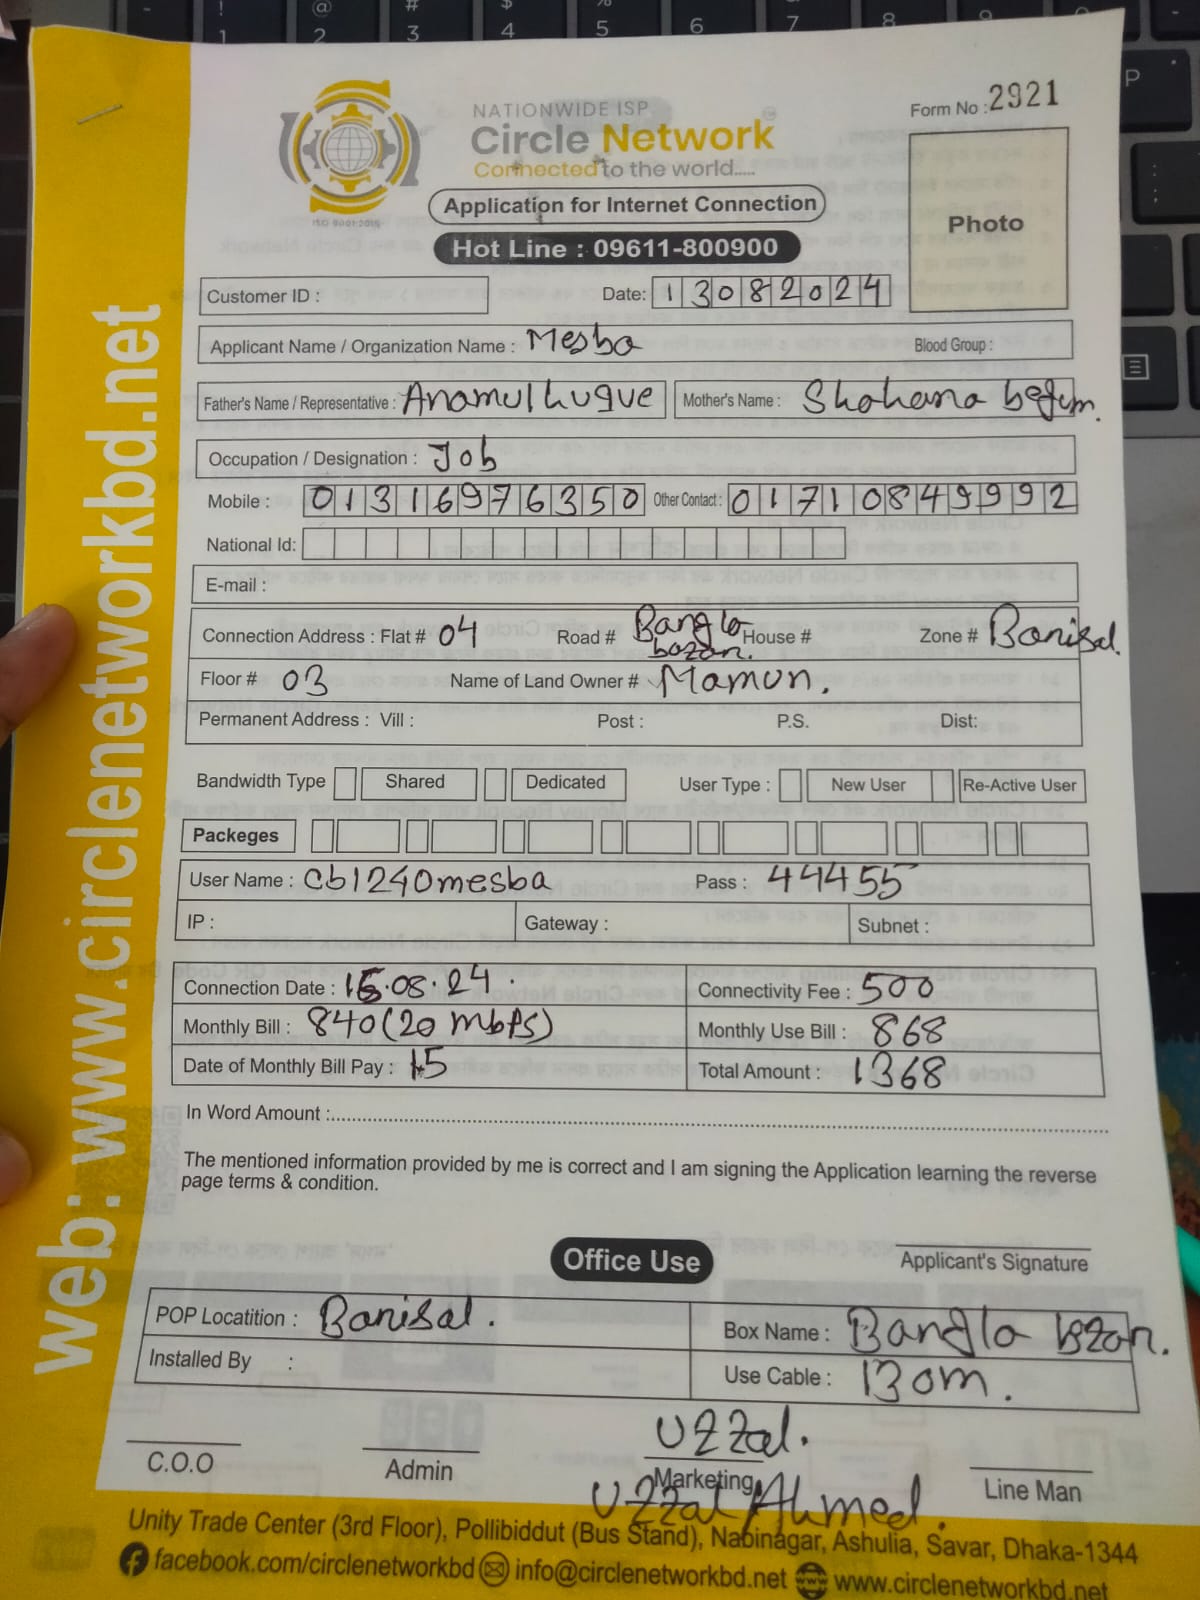 NATIONWIDE ISP
Circle Network
Connected to the world.....
ISO 9001:2015
Form No : 2921
Photo
Application for Internet Connection
Hot Line : 09611-800900
Customer ID :
Date: 13082024
Applicant Name / Organization Name : Mesba Blood Group :
Father's Name / Representative : Anamul huque Mother's Name : Shahana begum.
Occupation / Designation : Job
Mobile : 01316976350 Other Contact : 01710849992
National Id:
E-mail :
Connection Address : Flat # 04 Road # Bangla bazar. House # Zone # Barisal.
Floor # 03 Name of Land Owner # Mamun.
Permanent Address : Vill : Post : P.S. Dist:
Bandwidth Type Shared Dedicated User Type : New User Re-Active User
Packeges
User Name : cb1240mesba Pass : 44455
IP : Gateway : Subnet :
Connection Date : 15.08.24. Connectivity Fee : 500
Monthly Bill : 840 (20 mbps) Monthly Use Bill : 868
Date of Monthly Bill Pay : 15 Total Amount : 1368
In Word Amount :
The mentioned information provided by me is correct and I am signing the Application learning the reverse
page terms & condition.
Applicant's Signature
Office Use
POP Locatition : Barisal. Box Name : Bangla bzar.
Installed By : Use Cable : 130m.
Uzzal.
C.O.O Admin Marketing Line Man
Uzzal Ahmed.
Unity Trade Center (3rd Floor), Pollibiddut (Bus Stand), Nabinagar, Ashulia, Savar, Dhaka-1344
facebook.com/circlenetworkbd info@circlenetworkbd.net www.circlenetworkbd.net
web: www.circlenetworkbd.net